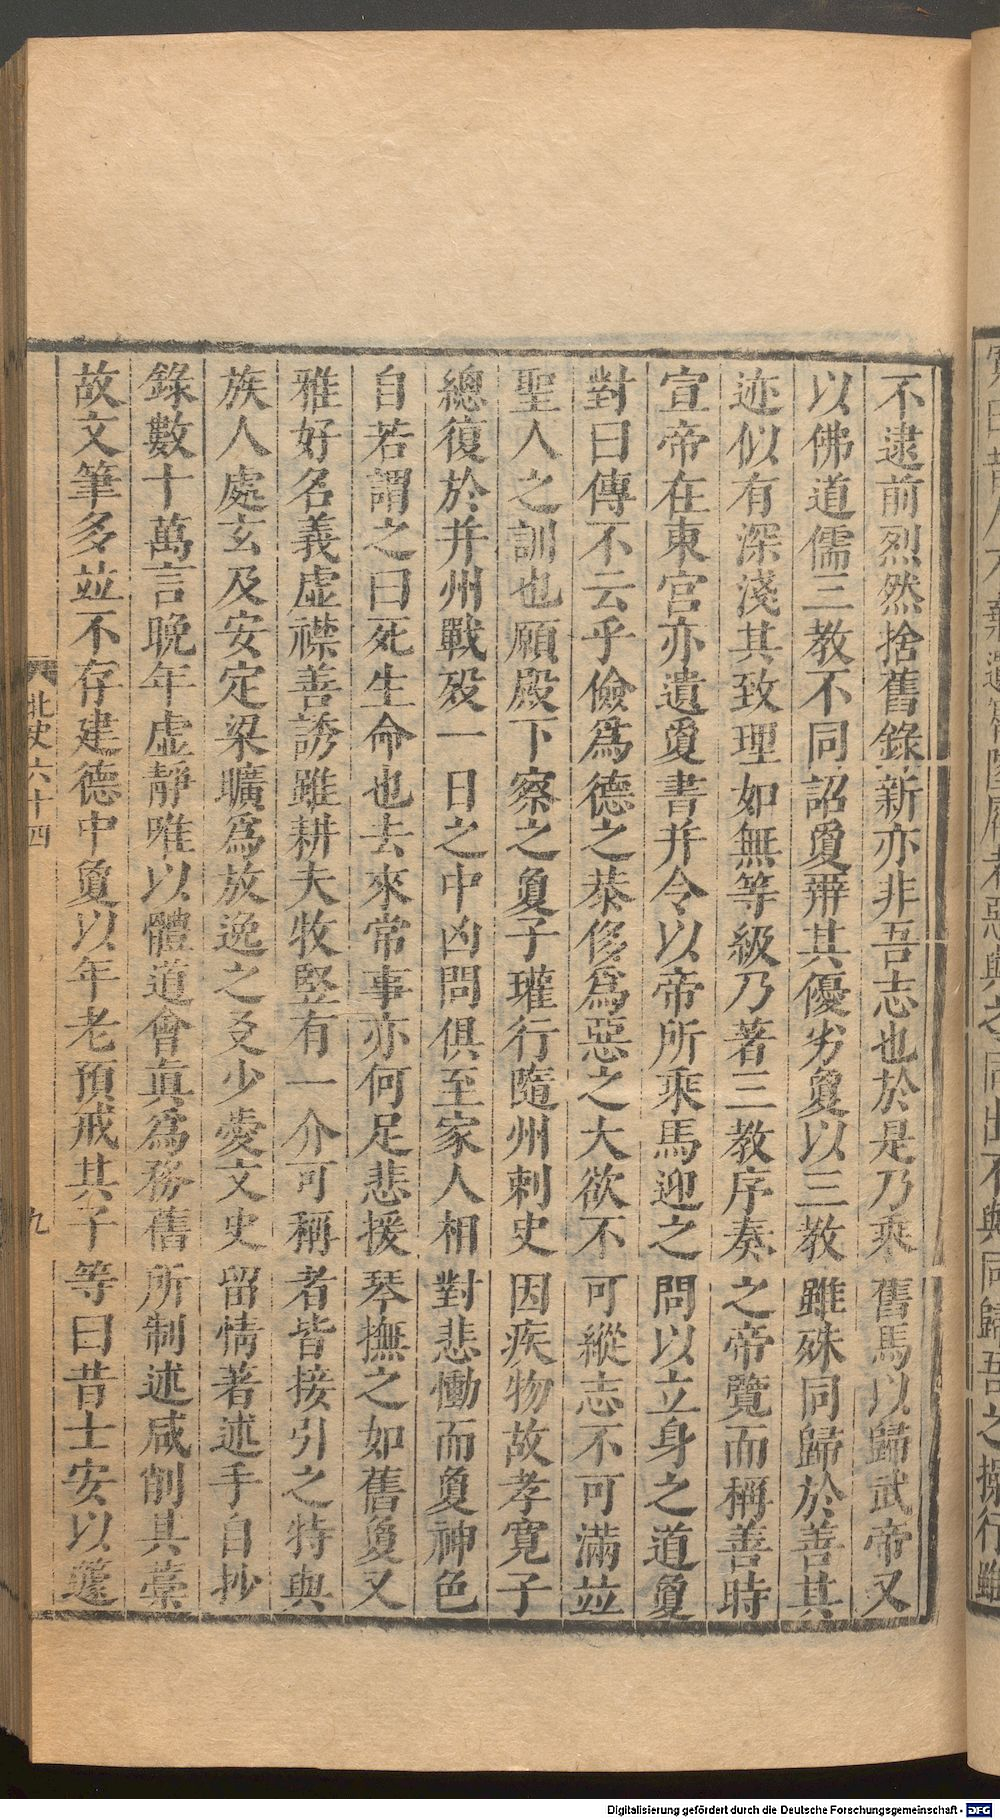 不逮前烈然捨舊錄新亦非吾志也於是乃乘舊馬以歸武帝又
以佛道儒三教不同詔敻辨其優劣敻以三教雖殊同歸於善其
迹似有深淺其致理如無等級乃著三教序奏之帝覽而稱善時
宣帝在東宮亦遺敻書并令以帝所乘馬迎之問以立身之道敻
對曰傳不云乎儉爲德之恭侈爲惡之大欲不可縱志不可滿並
聖人之訓也願殿下察之敻子瓘行隨州刺史因疾物故孝寬子
總復於并州戰殁一日之中凶問俱至家人相對悲慟而敻神色
自若謂之曰死生命也去來常事亦何足悲援琴撫之如舊敻又
雅好名義虛襟善誘雖耕夫牧豎有一介可稱者皆接引之特與
族人處玄及安定梁曠爲放逸之友少愛文史留情著述手自抄
錄數十萬言晚年虛靜唯以體道會眞爲務舊所制述咸削其藁
故文筆多並不存建德中敻以年老預戒其子等曰昔士安以籧
北史六十四
九
Digitalisierung gefördert durch die Deutsche Forschungsgemeinschaft - DFG